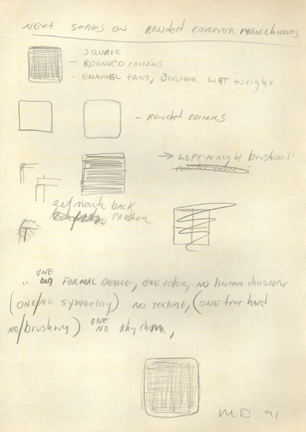 NEXT series on rounded corners
SQUARE
- ROUNDED CORNERS
- ENAMEL PAINT, BRUSHED LEFT to right
- rounded corners
→ LEFT to right brushed
get mark back
PROBLEM
ONE
FORMAL DEVICE, ONE COLOR, NO linear divisions
(ONE/NO SYMMETRY) NO TEXTURE, (ONE free hand
ONE
NO/brushing) NO rhythm,
MD 91